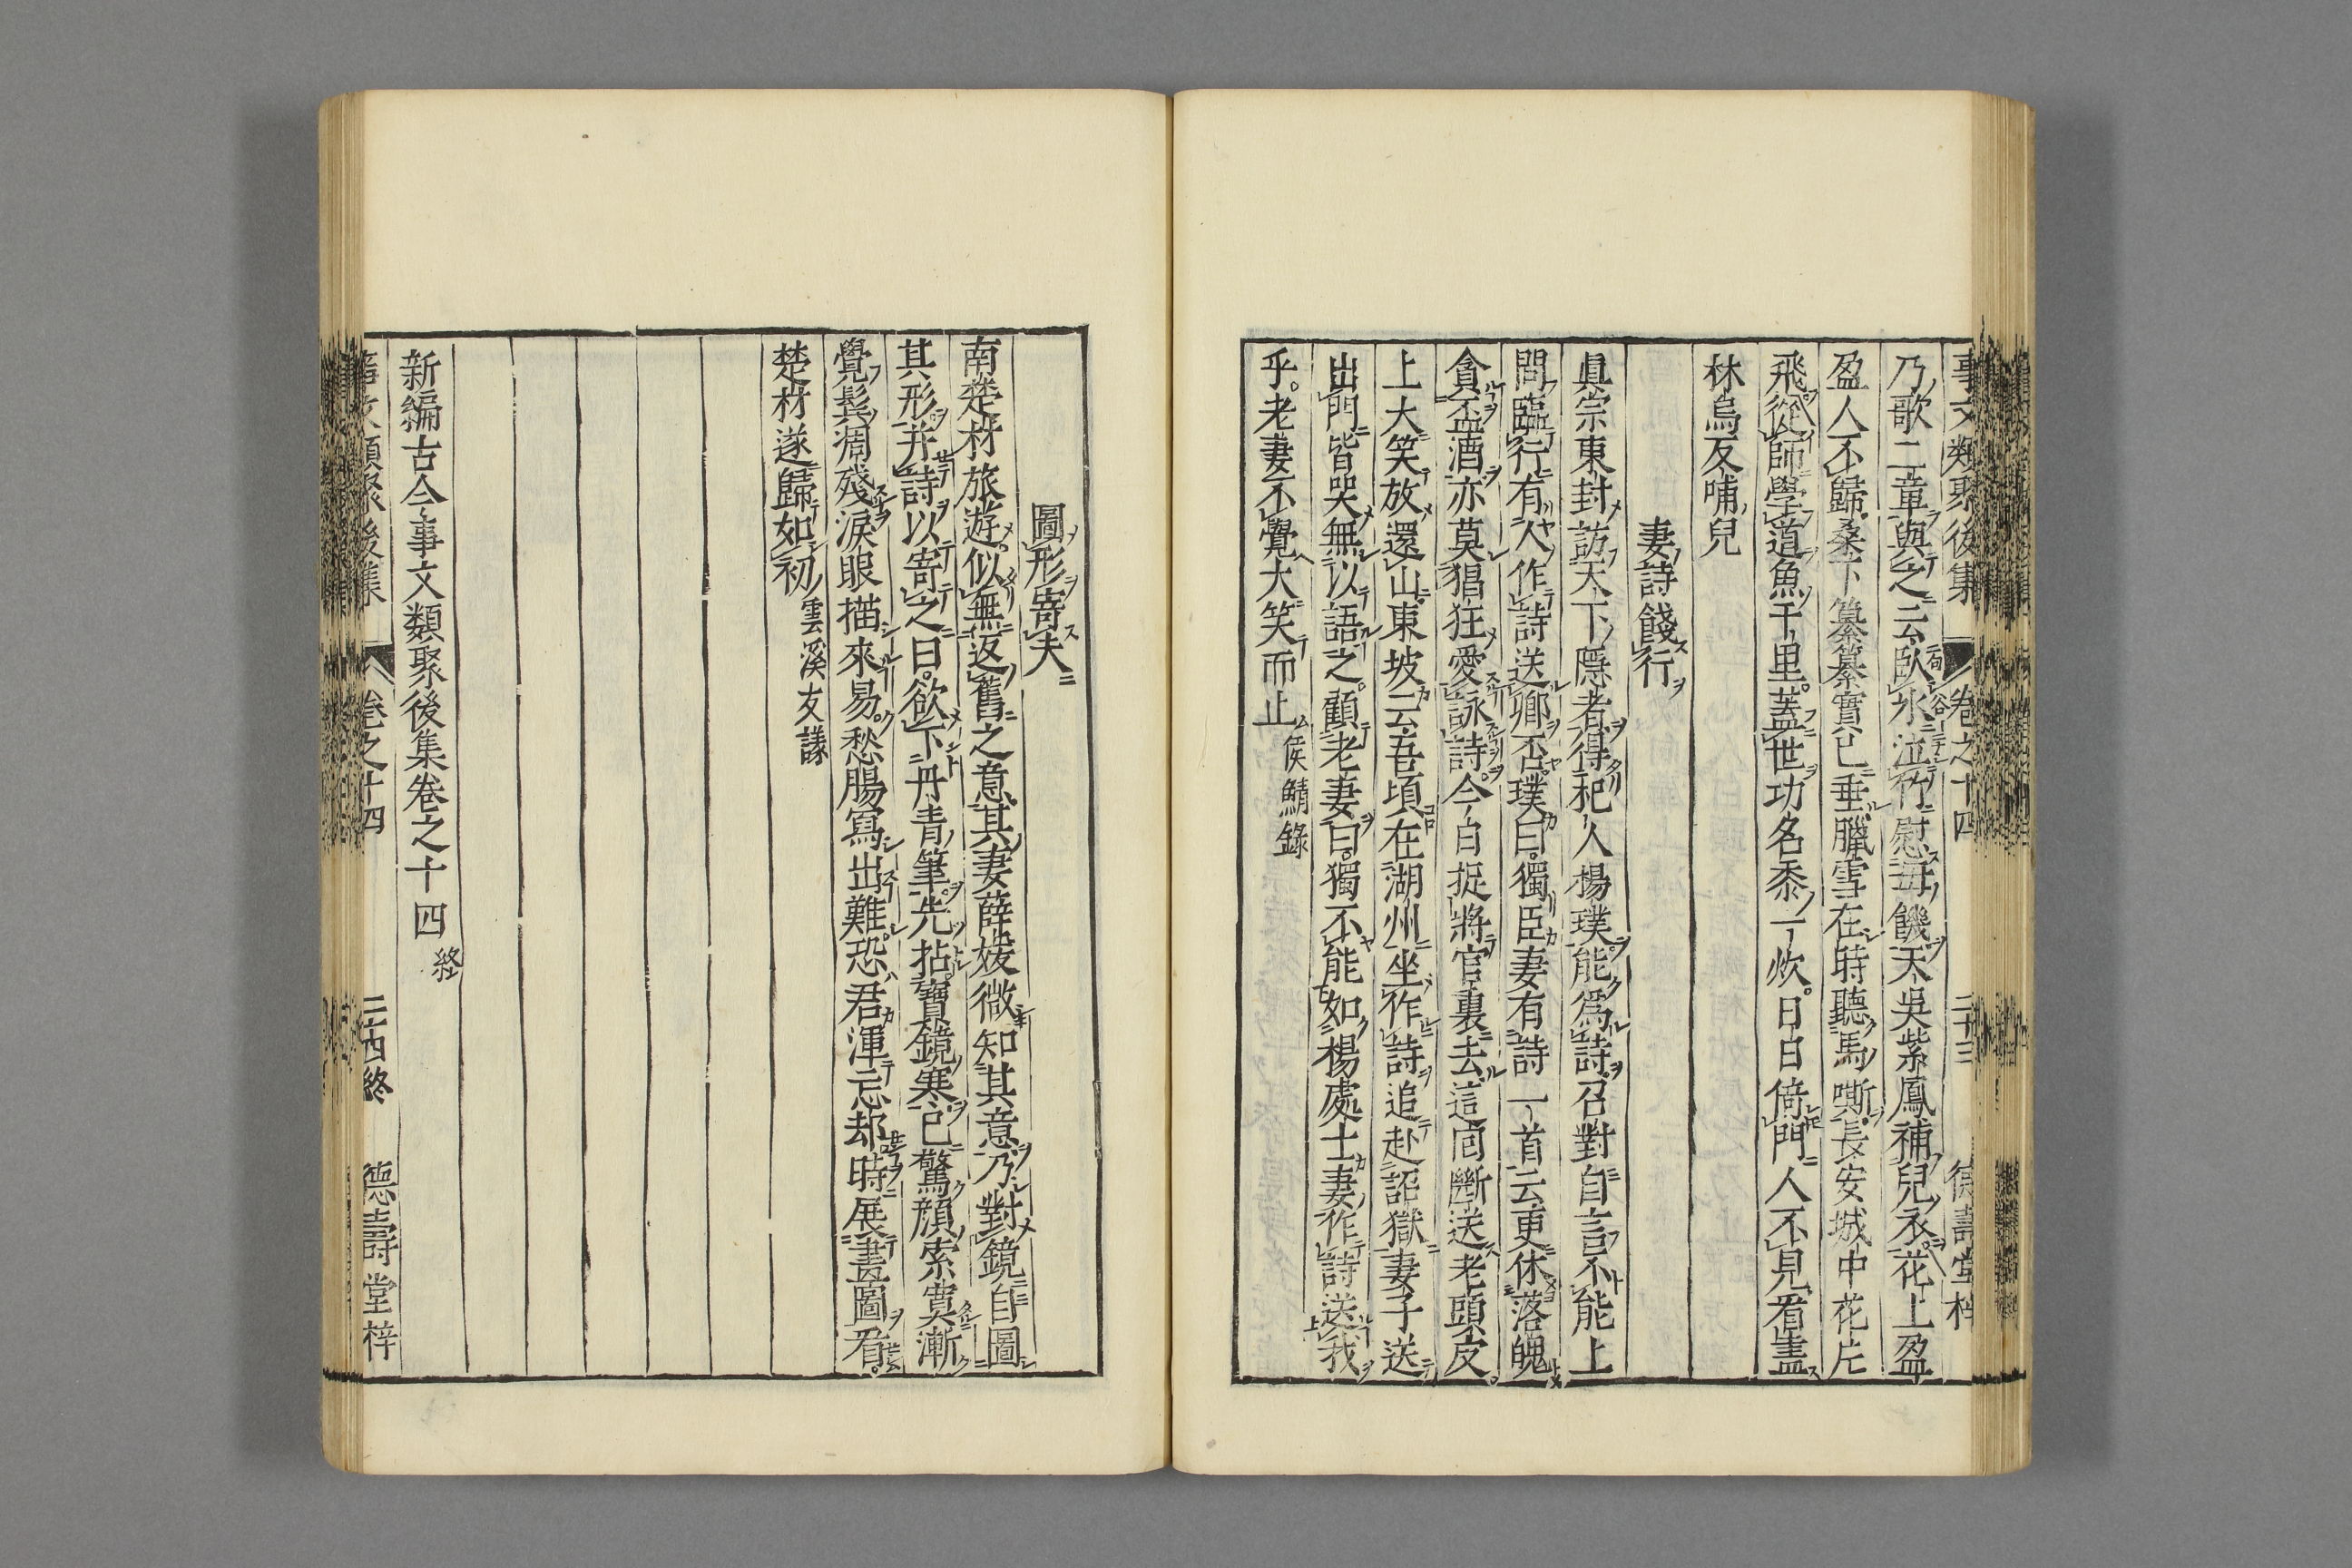 事文類聚後集 卷之十四 二十三 德壽堂梓
乃歌二章與之云臥氷泣竹慰母饑天吳紫鳳補兒衣花上盈
盈人不歸桑下纂纂實已垂臘雪在時聽馬嘶長安城中花片
飛從師學道魚千里蓋世功名黍一炊日日倚門人不見看盡
林烏反哺兒
妻詩餞行
眞宗東封訪天下隱者得杞人楊璞能爲詩召對自言不能上
問臨行有人作詩送卿否璞曰獨臣妻有詩一首云更休落魄
貪盃酒亦莫猖狂愛詠詩今日捉將官裏去這囘斷送老頭皮
上大笑放還山東坡云吾頃在湖州坐作詩追赴詔獄妻子送
出門皆哭無以語之顧老妻曰獨不能如楊處士妻作詩送我
乎老妻不覺大笑而止 侯鯖錄
圖形寄夫
南楚材旅遊似無返舊之意其妻薛媛微知其意乃對鏡自圖
其形并詩以寄之曰欲下丹青筆先拈寶鏡寒已驚顏索寞漸
覺鬓凋殘淚眼描來易愁腸寫出難恐君渾忘却時展畫圖看
楚材遂歸如初 雲溪友議
新編古今事文類聚後集卷之十四 終
事文類聚後集 卷之十四 二十四終 德壽堂梓